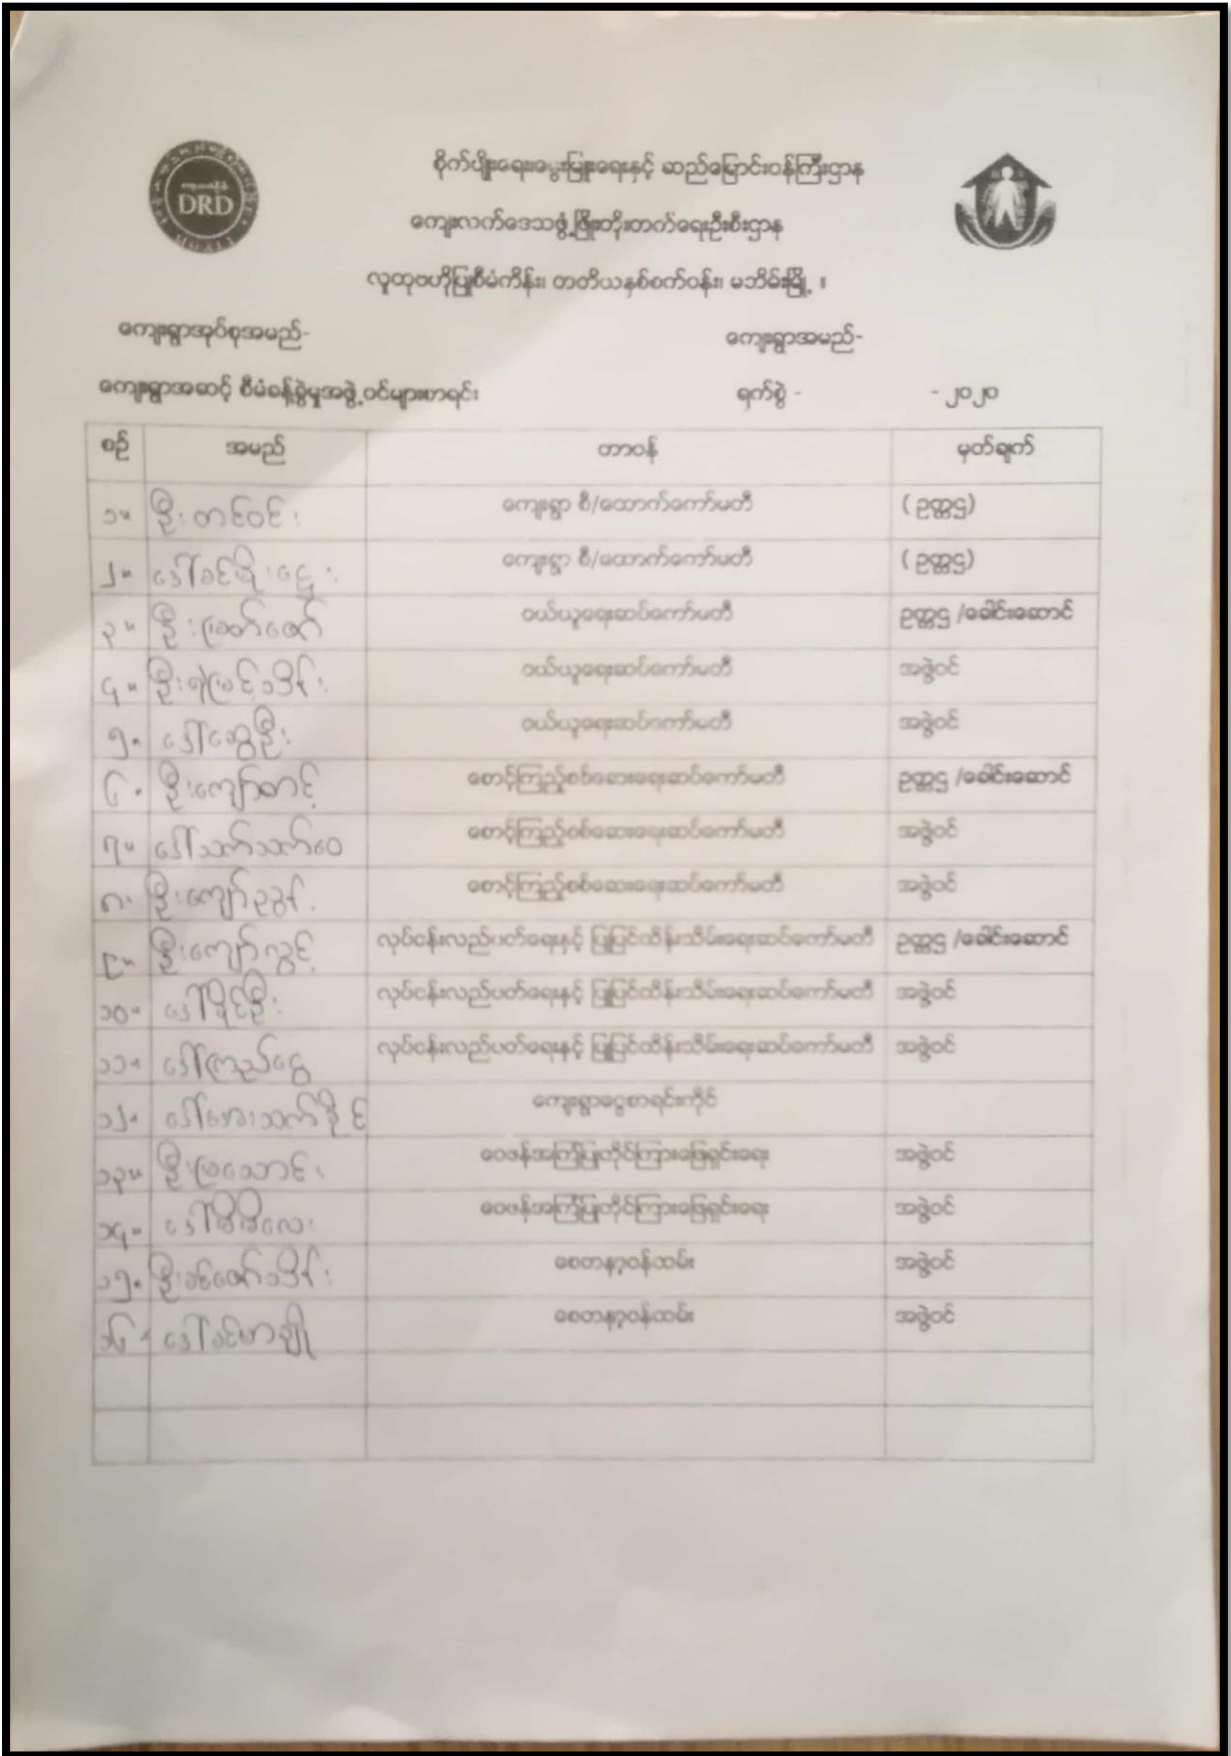 DRD
စိုက်ပျိုးရေးမွေးမြူရေးနှင့် ဆည်မြောင်းဝန်ကြီးဌာန
ကျေးလက်ဒေသဖွံ့ဖြိုးတိုးတက်ရေးဦးစီးဌာန
လူထုဗဟိုပြုစီမံကိန်း၊ တတိယနှစ်စက်ဝန်း၊ မဘိမ်းမြို့ ။
ကျေးရွာအုပ်စုအမည်- ကျေးရွာအမည်-
ကျေးရွာအဆင့် စီမံခန့်ခွဲမှုအဖွဲ့ဝင်များစာရင်း ရက်စွဲ - - ၂၀၂၀
စဉ် အမည် တာဝန် မှတ်ချက်
၁။ ဦးတင်ဝင်း ကျေးရွာ စီ/ထောက်ကော်မတီ ( ဥက္ကဌ)
၂။ ဒေါ်ခင်မိုးဌေး ကျေးရွာ စီ/ထောက်ကော်မတီ ( ဥက္ကဌ)
၃။ ဦးမြတ်ဇော် ဝယ်ယူရေးဆပ်ကော်မတီ ဥက္ကဌ /ခေါင်းဆောင်
၄။ ဦးရဲမြင့်သိန်း ဝယ်ယူရေးဆပ်ကော်မတီ အဖွဲ့ဝင်
၅။ ဒေါ်ဆွေဦး ဝယ်ယူရေးဆပ်ကော်မတီ အဖွဲ့ဝင်
၆။ ဦးကျော်ဆင့် စောင့်ကြည့်စစ်ဆေးရေးဆပ်ကော်မတီ ဥက္ကဌ /ခေါင်းဆောင်
၇။ ဒေါ်သက်သက်ဝေ စောင့်ကြည့်စစ်ဆေးရေးဆပ်ကော်မတီ အဖွဲ့ဝင်
၈။ ဦးကျော်ညွန့် စောင့်ကြည့်စစ်ဆေးရေးဆပ်ကော်မတီ အဖွဲ့ဝင်
၉။ ဦးကျော်လွင့် လုပ်ငန်းလည်ပတ်ရေးနှင့် ပြုပြင်ထိန်းသိမ်းရေးဆပ်ကော်မတီ ဥက္ကဌ /ခေါင်းဆောင်
၁၀။ ဒေါ်ခိုင်ဦး လုပ်ငန်းလည်ပတ်ရေးနှင့် ပြုပြင်ထိန်းသိမ်းရေးဆပ်ကော်မတီ အဖွဲ့ဝင်
၁၁။ ဒေါ်ကြည်ငွေ လုပ်ငန်းလည်ပတ်ရေးနှင့် ပြုပြင်ထိန်းသိမ်းရေးဆပ်ကော်မတီ အဖွဲ့ဝင်
၁၂။ ဒေါ်အေးသက်ခိုင် ကျေးရွာငွေစာရင်းကိုင်
၁၃။ ဦးမြသောင်း ဝေဖန်အကြံပြုတိုင်ကြားဖြေရှင်းရေး အဖွဲ့ဝင်
၁၄။ ဒေါ်မိမိလေး ဝေဖန်အကြံပြုတိုင်ကြားဖြေရှင်းရေး အဖွဲ့ဝင်
၁၅။ ဦးခင်ဇော်သိန်း စေတနာ့ဝန်ထမ်း အဖွဲ့ဝင်
၁၆။ ဒေါ်ခင်မာချို စေတနာ့ဝန်ထမ်း အဖွဲ့ဝင်